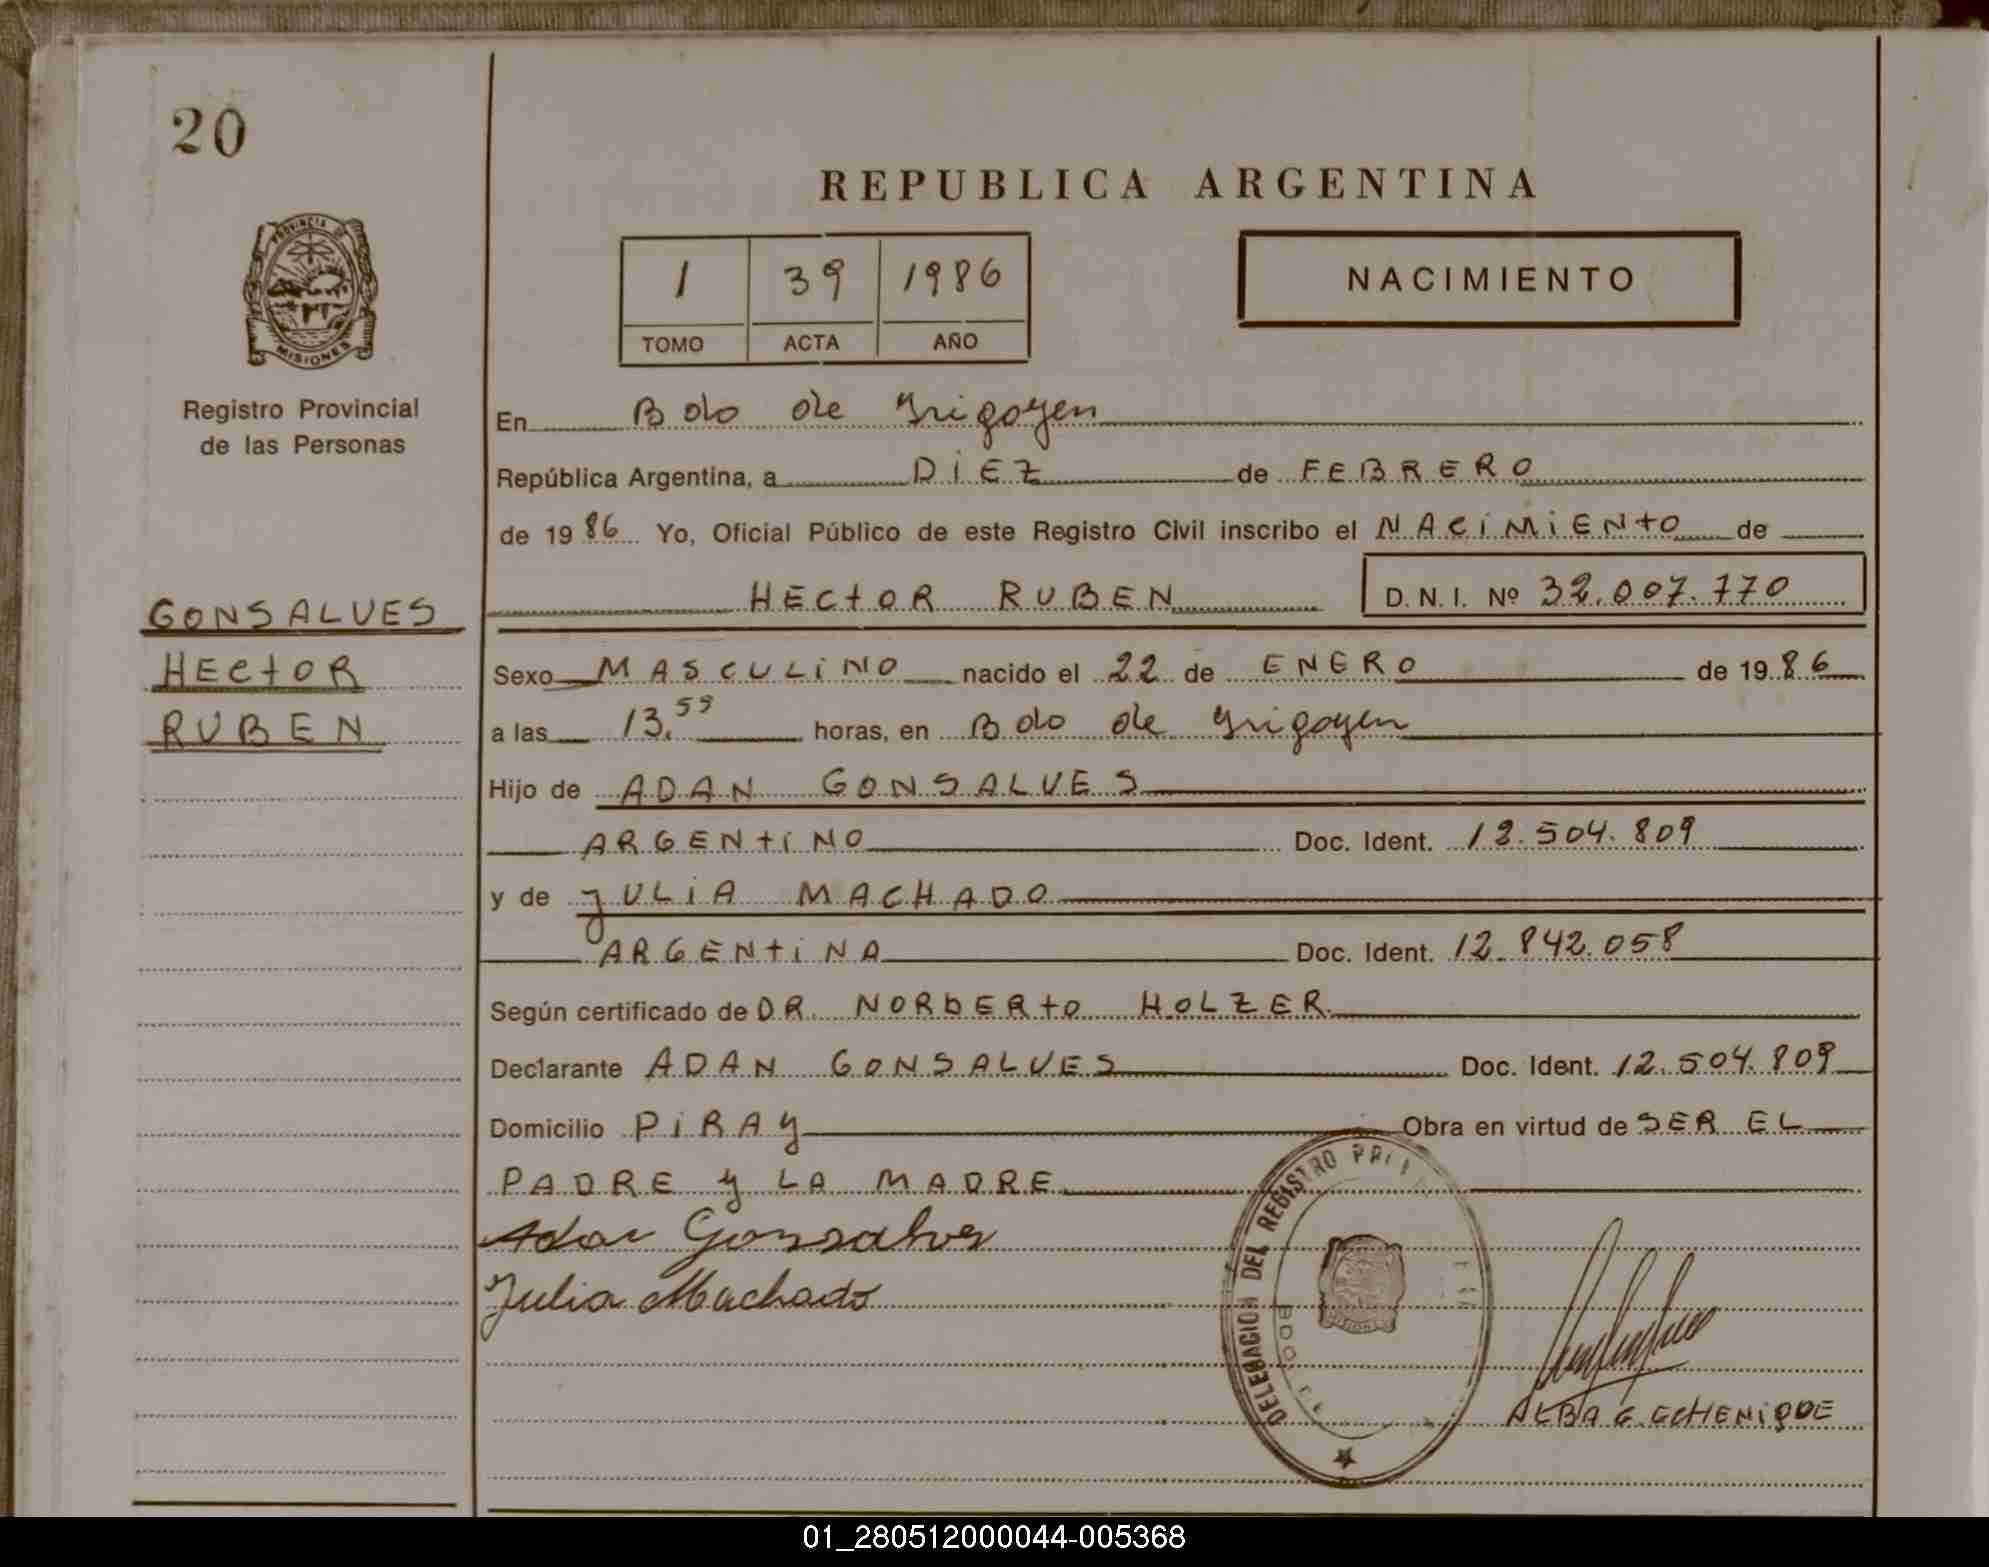 20
REPUBLICA ARGENTINA
1 39 1986
TOMO ACTA AÑO
NACIMIENTO
PROVINCIA DE
MISIONES
Registro Provincial
de las Personas
En Bdo de Yrigoyen
República Argentina, a DIEZ de FEBRERO
de 1986 Yo, Oficial Público de este Registro Civil inscribo el NACIMIENTO de
HECTOR RUBEN D. N. I. Nº 32.007.770
GONSALVES
HECTOR
RUBEN
Sexo MASCULINO nacido el 22 de ENERO de 1986
a las 13.55 horas, en Bdo de Yrigoyen
Hijo de ADAN GONSALVES
ARGENTINO Doc. Ident. 12.504.809
y de JULIA MACHADO
ARGENTINA Doc. Ident. 12.842.058
Según certificado de DR. NORBERTO HOLZER
Declarante ADAN GONSALVES Doc. Ident. 12.504.809
Domicilio PIRAY Obra en virtud de SER EL
PADRE y LA MADRE
Adan Gonsalves
Julia Machado
DELEGACION DEL REGISTRO
ALBA G. ECHENIQUE
01_280512000044-005368